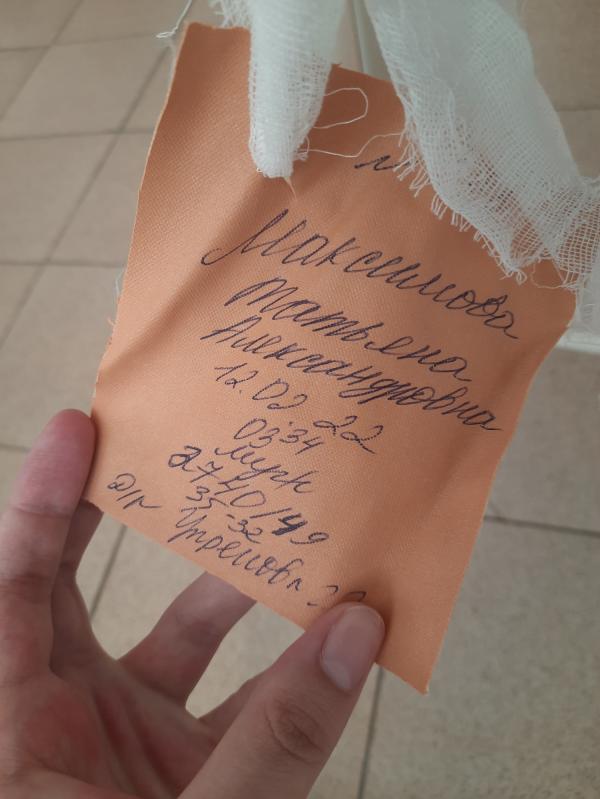 Максимова
Татьяна
Александровна
12.02 22
03:34
Муж
2740/49
35-32